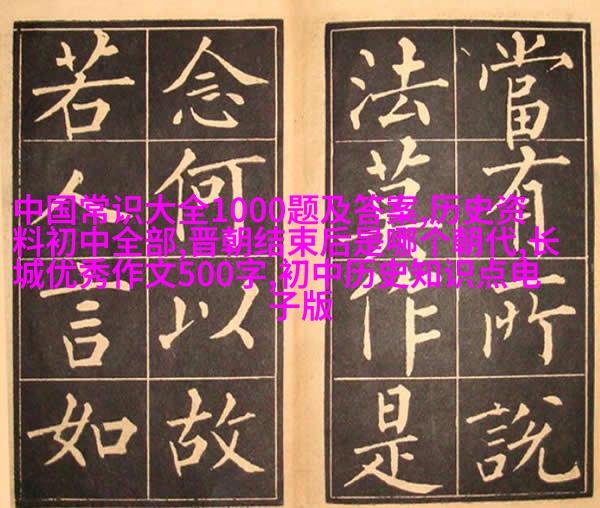 當有所說
法莫作是
念何以故
若人言如
中国常识大全1000题及答案,历史资
料初中全部,晋朝结束后是哪个朝代,长
城优秀作文500字,初中历史知识点电
子版